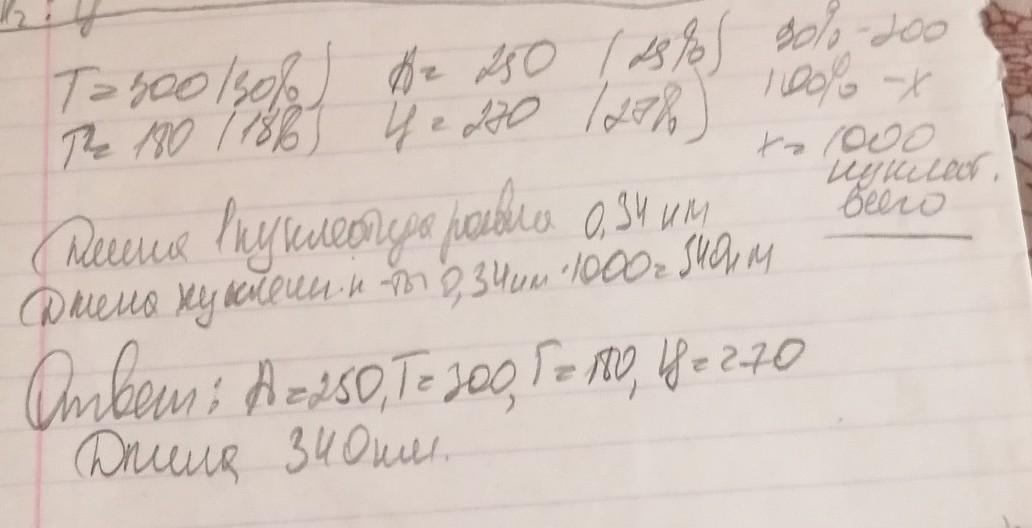 Т = 300 (30%) А = 250 (25%) 30% - 300
Г = 180 (18%) Ц = 270 (27%) 100% - х
х = 1000
нуклеот.
всего
Длина 1 нуклеотида равна 0,34 нм
Длина нуклеин. к-ты 0,34 нм · 1000 = 340 нм
Ответ: А = 250, Т = 300, Г = 180, Ц = 270
Длина 340 нм.